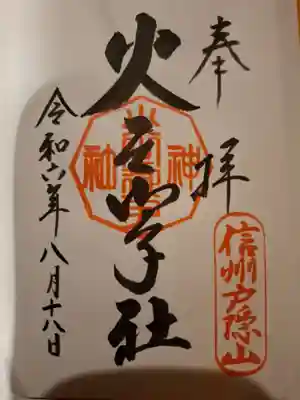 奉拝
信州戸隠山
火之御子社
神社
令和六年八月十八日